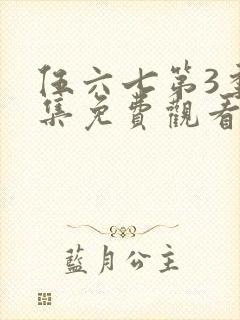 伍六七第3季
集免費觀看
藍月公主